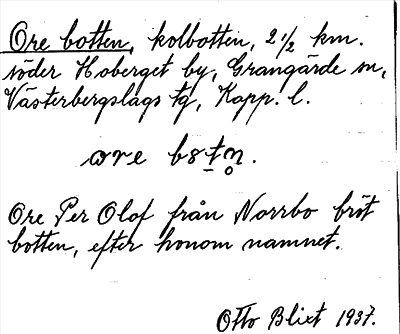 Ore botten, kolbotten, 2 1/2 km.
söder Hoberget by, Grangärde sn,
Västerbergslags tg, Kopp. l.
ωre bots̥n̥.
Ore Per Olof från Norrbo bröt
botten, efter honom namnet.
Otto Blixt 1937.